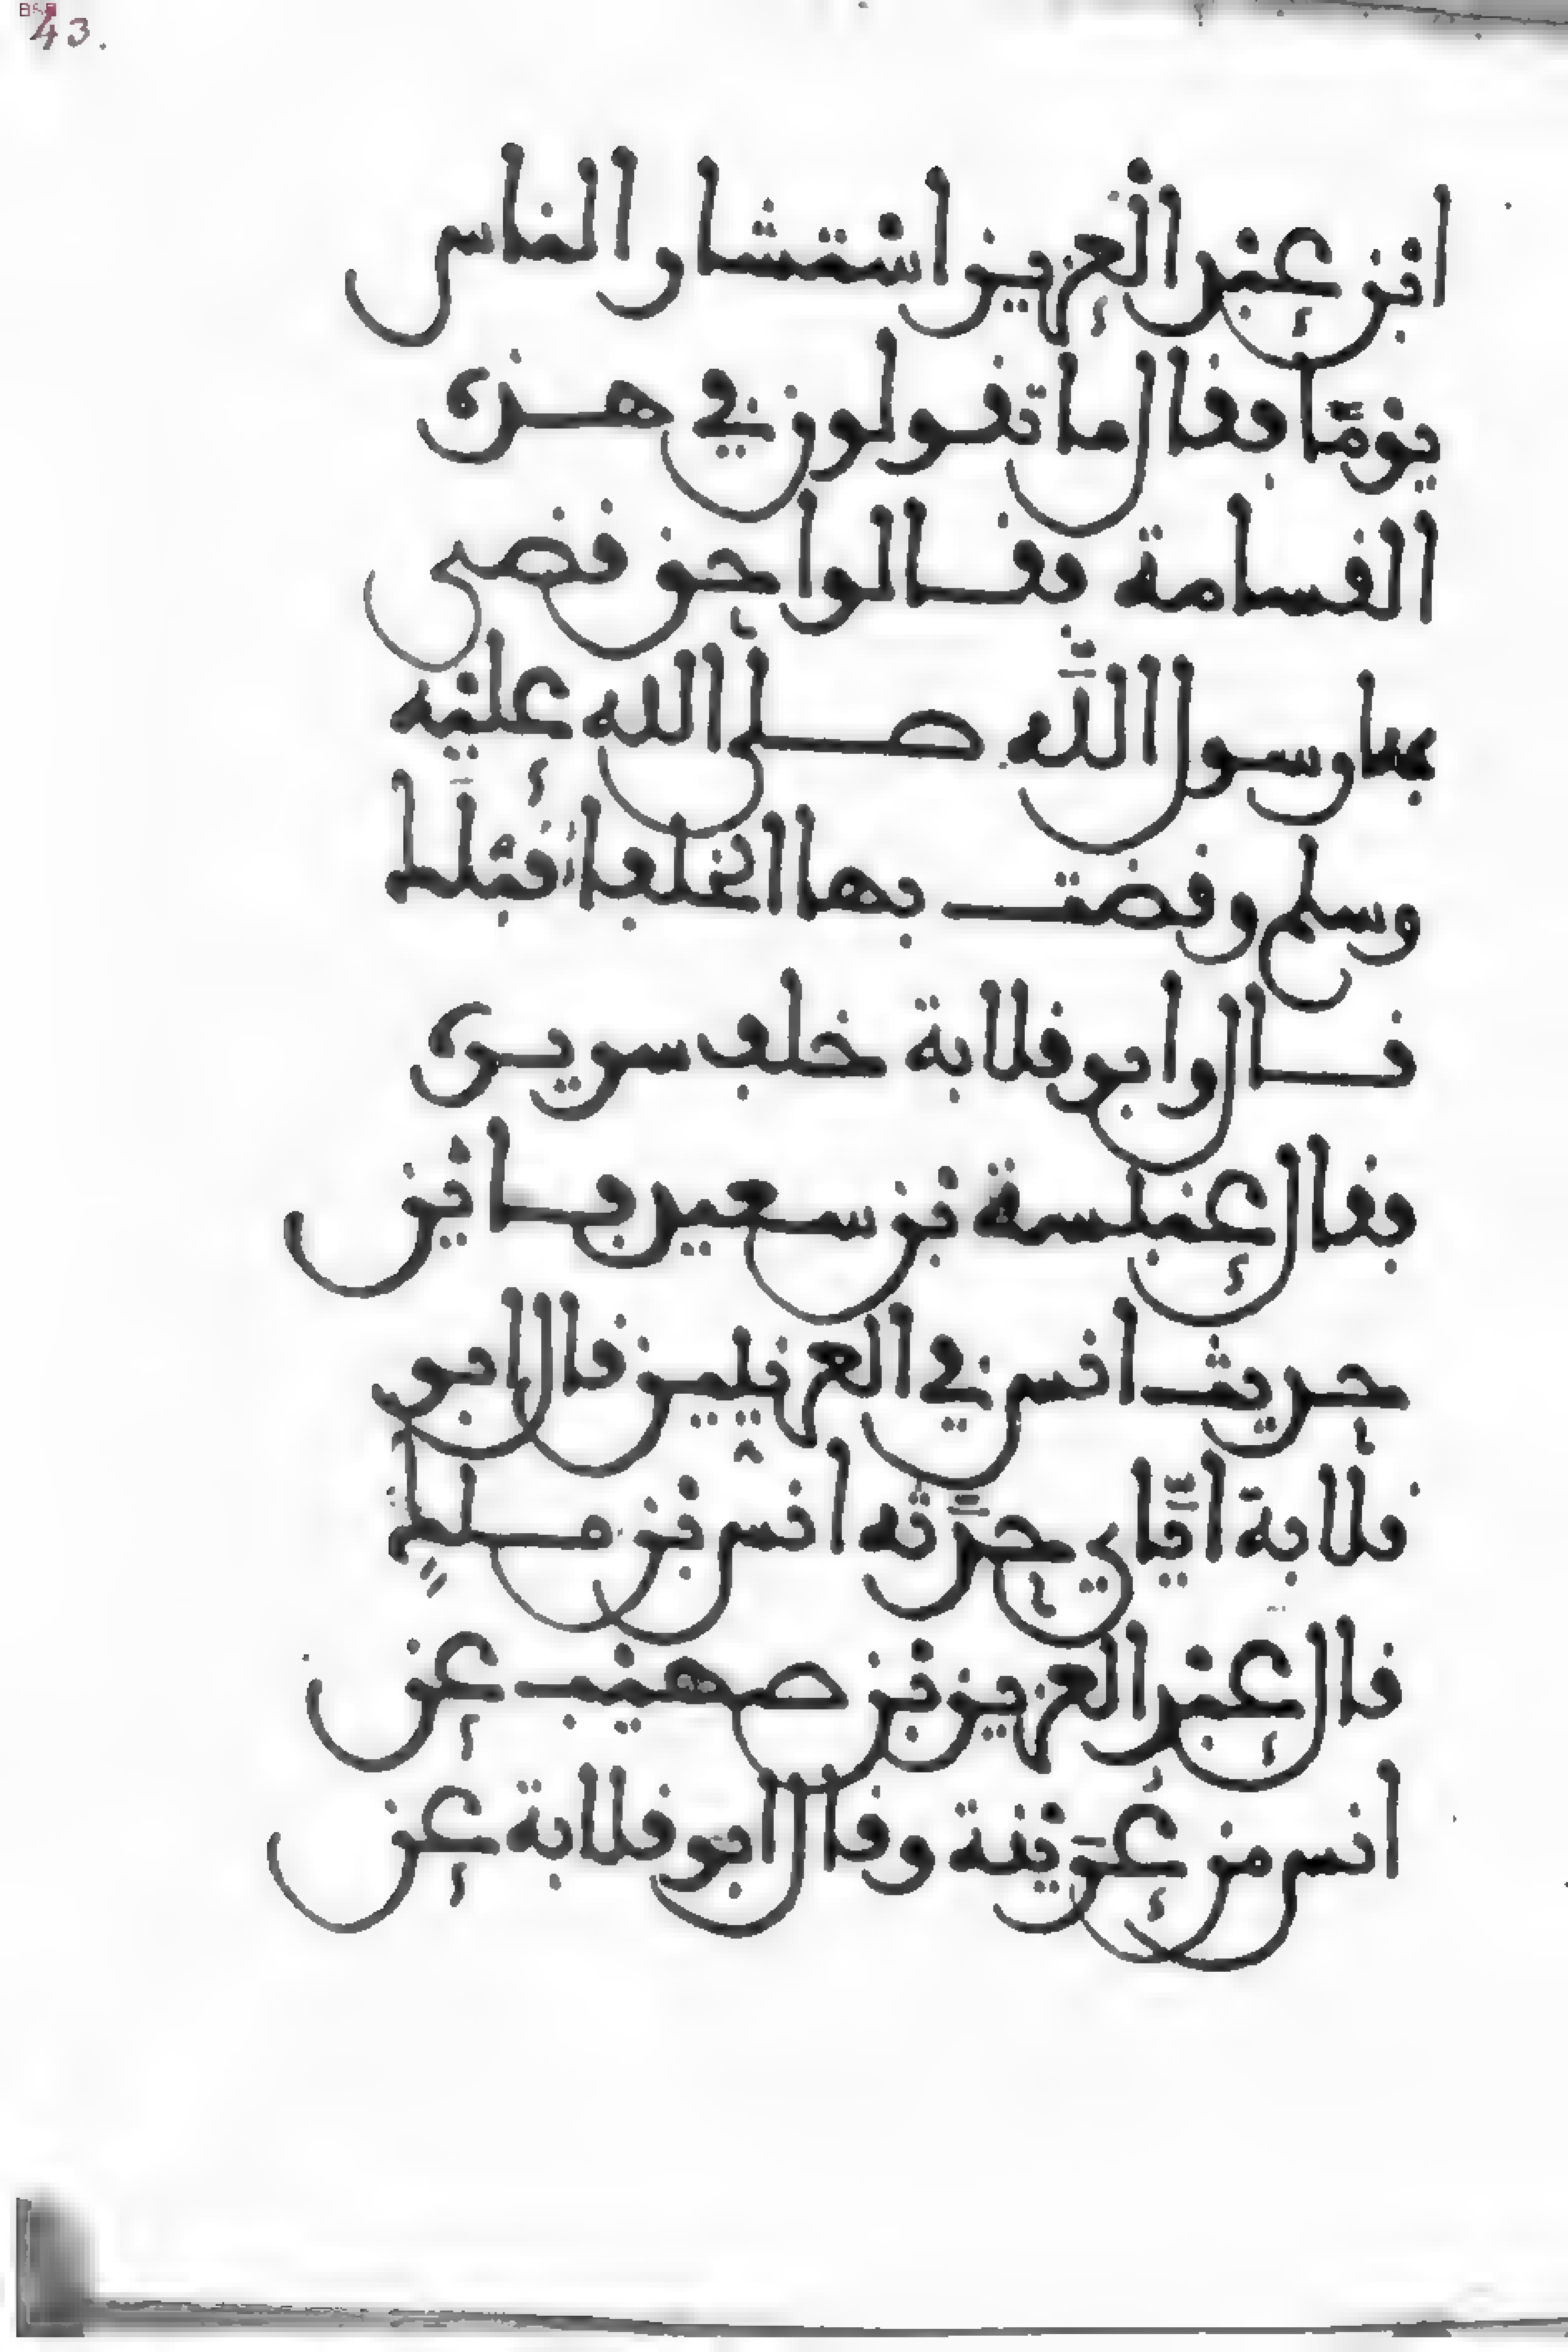 43.
ابن عبد العزيز استشار الناس
يومًا فقال ما تقولون في هذه
القسامة فقالوا حق قضى
بها رسول الله صلى الله عليه
وسلم وقضت بها الخلفا قبلك
قال وابو قلابة خلف سريره
فقال عنبسة بن سعيد فاين
حديث انس في العرنيين قال ابو
قلابة ايّاي حدّثه انس بن مـلك
قال عبد العزيز بن صهيب عن
انس من عرينة وقال ابو قلابة عن